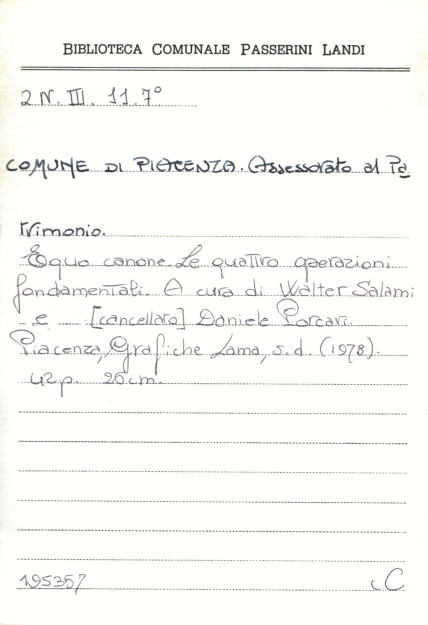 BIBLIOTECA COMUNALE PASSERINI LANDI
2 N. III. 11.7°
COMUNE DI PIACENZA. Assessorato al Pa
trimonio.
Equo canone. Le quattro operazioni
fondamentali. A cura di Walter Salami
e [cancellato] Daniele Porcari.
Piacenza, Grafiche Lama, s.d. (1978).
42 p. 20 cm.
195357 C